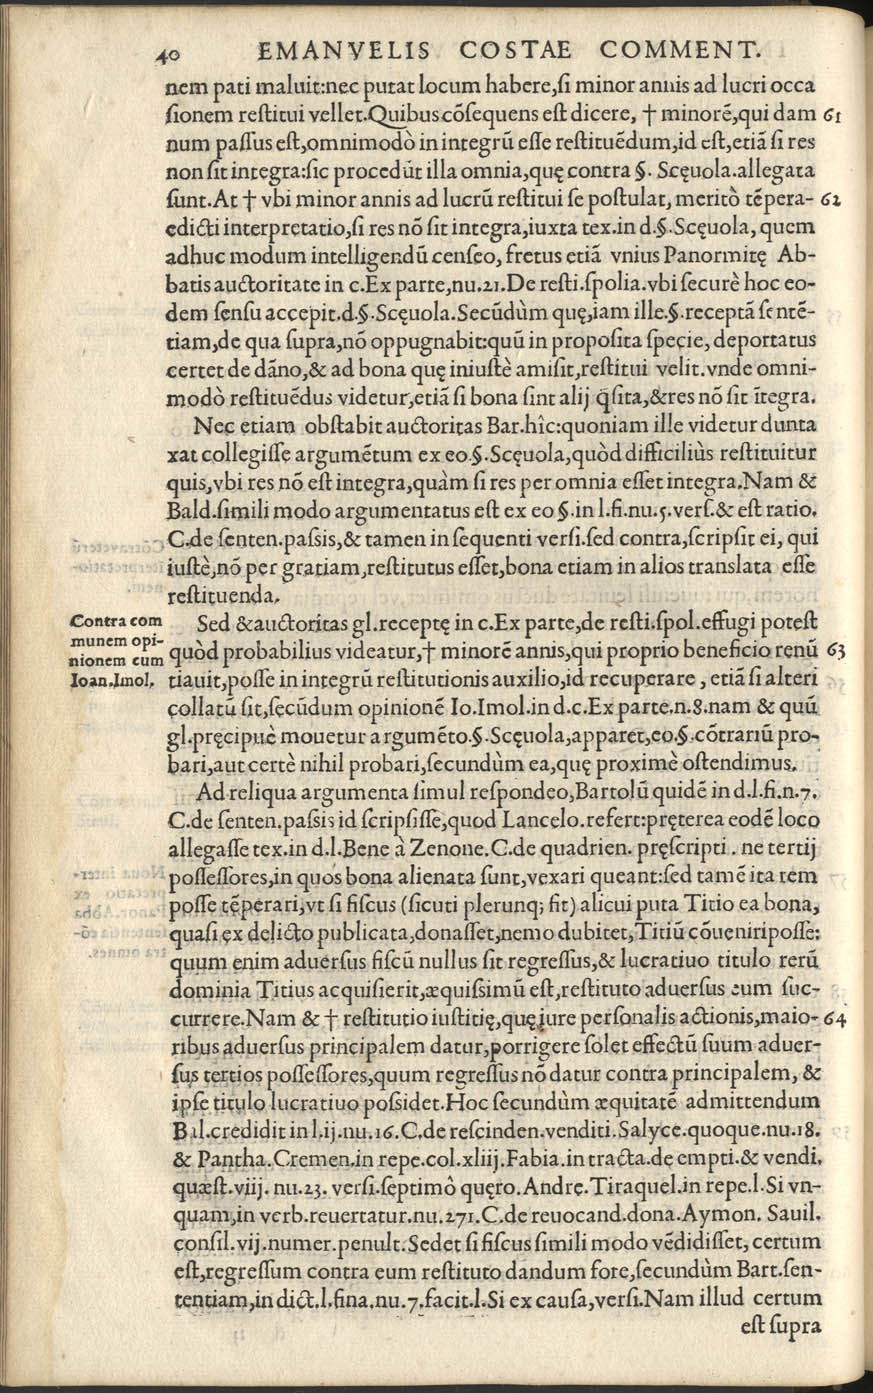 40 EMANVELIS COSTAE COMMENT.
nem pati maluit:nec putat locum habere,ſi minor annis ad lucri occa
ſionem reſtitui vellet.Quibus cõſequens eſt dicere, † minorẽ,qui dam 61
num paſſus eſt,omnimodò in integrũ eſſe reſtituẽdum,id eſt,etiã ſi res
non ſit integra:ſic procedũt illa omnia,quę contra §. Scęuola.allegata
ſunt.At † vbi minor annis ad lucrũ reſtitui ſe poſtulat, meritò tẽpera- 62
edicti interpretatio,ſi res nõ ſit integra,iuxta tex.in d.§.Scęuola, quem
adhuc modum intelligendũ cenſeo, fretus etiã vnius Panormitę Ab-
batis auctoritate in c.Ex parte,nu.21.De reſti.ſpolia.vbi ſecurè hoc eo-
dem ſenſu accepit.d.§.Scęuola.Secũdùm quę,iam ille.§.receptã ſentẽ-
tiam,de qua ſupra,nõ oppugnabit:quũ in propoſita ſpecie, deportatus
certet de dãno,& ad bona quę iniuſtè amiſit,reſtitui velit.vnde omni-
modò reſtituẽdus videtur,etiã ſi bona ſint alij q̃ſita,&res nõ ſit ĩtegra.
Nec etiam obſtabit auctoritas Bar.hîc:quoniam ille videtur dunta
xat collegiſſe argumẽtum ex eo.§.Scęuola,quòd difficiliùs reſtituitur
quis,vbi res nõ eſt integra,quàm ſi res per omnia eſſet integra.Nam &
Bald.ſimili modo argumentatus eſt ex eo §.in l.fi.nu.5.verſ.& eſt ratio.
C.de ſenten.paſsis,& tamen in ſequenti verſi.ſed contra,ſcripſit ei, qui
iuſtè,nõ per gratiam,reſtitutus eſſet,bona etiam in alios translata eſſe
reſtituenda.
Contra com
munem opi-
nionem cum
Ioan.Imol.
Sed &auctoritas gl.receptę in c.Ex parte,de reſti.ſpol.effugi poteſt
quòd probabilius videatur,† minorẽ annis,qui proprio beneficio renũ 63
tiauit,poſſe in integrũ reſtitutionis auxilio,id recuperare , etiã ſi alteri
collatũ ſit,ſecũdum opinionẽ Io.Imol.in d.c.Ex parte.n.8.nam & quũ
gl.pręcipuè mouetur argumẽto.§.Scęuola,apparet,eo.§.cõtrariũ pro-
bari,aut certè nihil probari,ſecundùm ea,quę proximè oſtendimus.
Ad reliqua argumenta ſimul reſpondeo,Bartolũ quidẽ in d.l.fi.n.7.
C.de ſenten.paſsis id ſcripſiſſe,quod Lancelo.refert:pręterea eodẽ loco
allegaſſe tex.in d.l.Bene à Zenone.C.de quadrien. pręſcripti . ne tertij
poſſeſſores,in quos bona alienata ſunt,vexari queant:ſed tamẽ ita rem
poſſe tẽperari,vt ſi fiſcus (ſicuti plerunq; fit) alicui puta Titio ea bona,
quaſi ex delicto publicata,donaſſet,nemo dubitet,Titiũ cõueniri poſſe:
quum enim aduerſus fiſcũ nullus ſit regreſſus,& lucratiuo titulo rerũ
dominia Titius acquiſierit,æquiſsimũ eſt,reſtituto aduerſus eum ſuc-
currere.Nam & † reſtitutio iuſtitię,quę iure perſonalis actionis,maio- 64
ribus aduerſus principalem datur,porrigere ſolet effectũ ſuum aduer-
ſus tertios poſſeſſores,quum regreſſus nõ datur contra principalem, &
ipſe titulo lucratiuo poſsidet.Hoc ſecundùm æquitatẽ admittendum
Bal.credidit in l.ij.nu.16.C.de reſcinden.venditi.Salyce.quoque.nu.18.
& Pantha.Cremen.in repe.col.xliij.Fabia.in tracta.de empti.& vendi.
quæſt.viij. nu.23. verſi.ſeptimò quęro.Andre.Tiraquel.in repe.l.Si vn-
quam,in verb.reuertatur.nu.271.C.de reuocand.dona.Aymon. Sauil.
conſil.vij.numer.penult.Sed et ſi fiſcus ſimili modo vẽdidiſſet, certum
eſt,regreſſum contra eum reſtituto dandum fore,ſecundùm Bart.ſen-
tentiam,in dict.l.fina.nu.7.facit.l.Si ex cauſa,verſi.Nam illud certum
eſt ſupra